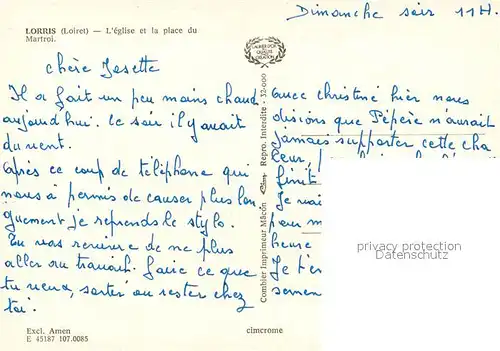 Dimanche soir 11H.
LORRIS (Loiret) — L'église et la place du
Martroi.
LAURIER D'OR
DE
QUALITE
CREATION
chère Josette
Il a fait un peu moins chaud
aujourd'hui. le soir il y avait
du vent.
après ce coup de téléphone qui
nous a permis de causer plus lon
guement je reprends le stylo.
Tu vas revivre de ne plus
aller au travail. Faire ce que
tu veux, sortir ou rester chez
toi.
Combier Imprimeur Mâcon Cim Repro. Interdite - 32-000
avec christine hier nous
disions que Pépère n'aurait
jamais supporter cette cha
leur,
finit
Je vai
peu m
heure
Je t'e
semen
privacy protection
Datenschutz
Excl. Amen
E 45187 107.0085
cimcrome